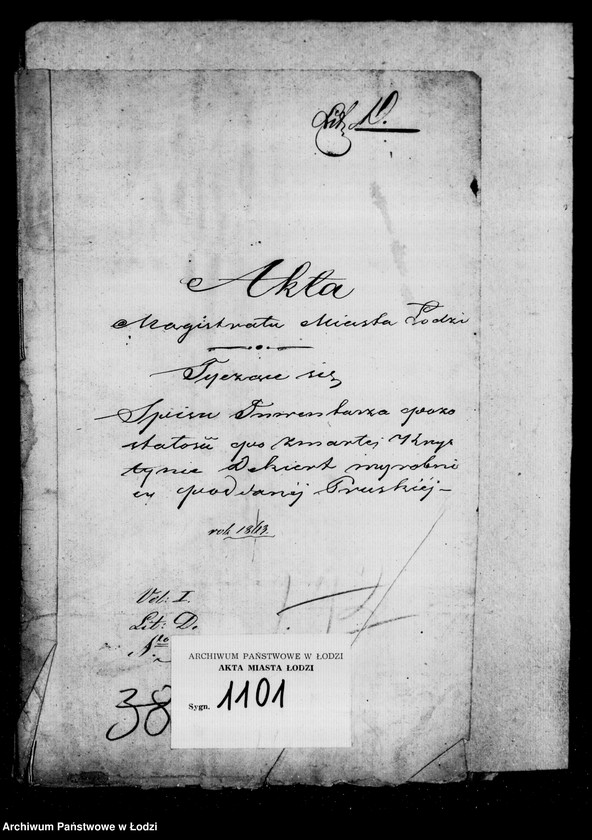 Lit. D.
Akta
Magistratu Miasta Łodzi
Tyczące się
Spisu Inwentarza pozo
stałości po zmarłej Krys
tynie Dekiert wyrobni
cy poddanéj Pruskiéj
rok 1843.
Vol: I.
Lit: D.
No
38
ARCHIWUM PAŃSTWOWE W ŁODZI
AKTA MIASTA ŁODZI
Sygn. 1101
Archiwum Państwowe w Łodzi